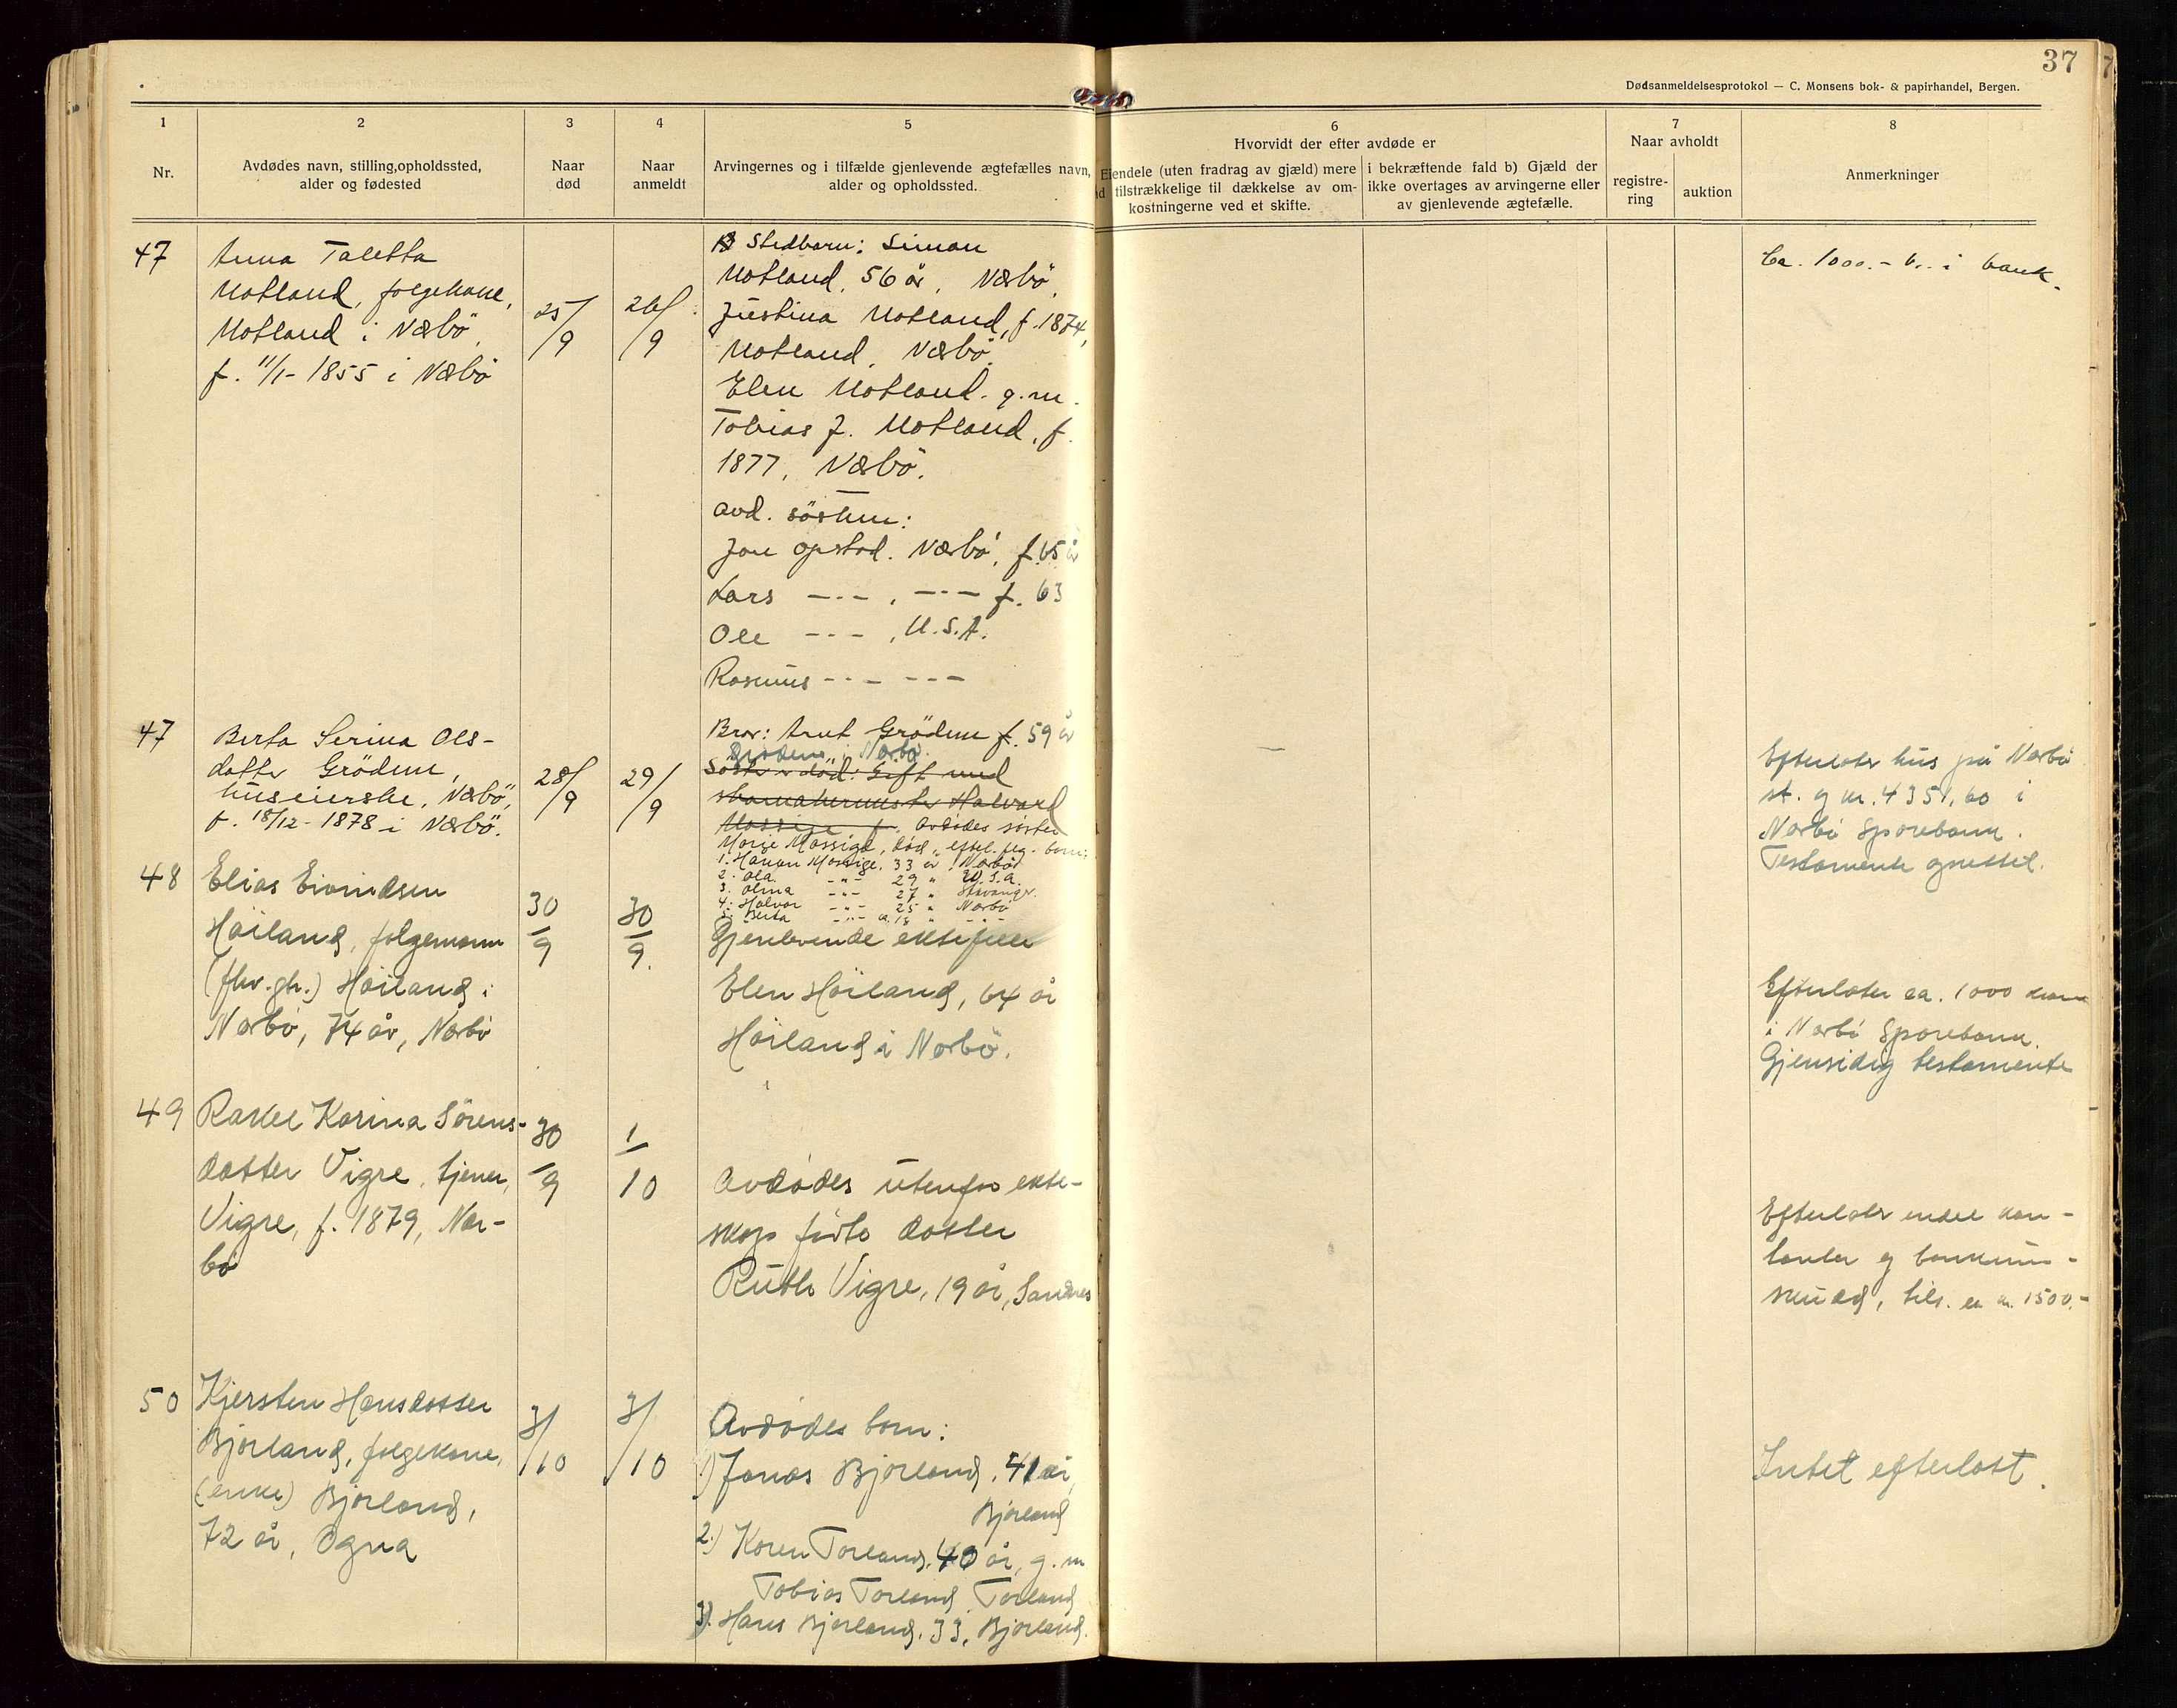 37
Dødsanmeldelsesprotokol — C. Monsens bok- & papirhandel, Bergen.
1
Nr.
2
Avdødes navn, stilling, opholdssted,
alder og fødested
3
Naar
død
4
Naar
anmeldt
5
Arvingernes og i tilfælde gjenlevende ægtefælles navn,
alder og opholdssted.
6
Hvorvidt der efter avdøde er
Eiendele (uten fradrag av gjæld) mere
tilstrækkelige til dækkelse av om-
kostningerne ved et skifte.
i bekræftende fald b) Gjæld der
ikke overtages av arvingerne eller
av gjenlevende ægtefælle.
7
Naar avholdt
registre-
ring
auktion
8
Anmerkninger
47
Anna Taletta
Motland, folgekone,
Motland i Nærbö,
f. 11/1- 1855 i Nærbö
25/9
26/9
Stedbarn: Simon
Motland, 56 år, Nærbö,
Justina Motland, f. 1874,
Motland, Nærbö,
Elen Motland. g.m.
Tobias J. Motland, f.
1877, Nærbö.
avd. sösken:
Jon Opstad. Nærbö, f. 65 år
Lars --- , --- f. 63
Ole --- , U.S.A.
Rasmus --- ---
Ca. 1000.- kr. i bank.
47
Berta Serina Ols-
datter Grödem,
huseierske, Nærbö,
f. 18/12- 1878 i Nærbö.
28/9
29/9
Bror: Arnt Grödem f. 59 år
Grödem i Nærbö.
Söster död: Gift med
Halvard
Mossige f. Avdødes söster
Marie Mossige, död, eftl. flg. barn:
1. Håkon Mossige, 33 år, Nærbö
2. Ola -"- 29 " U.S.A.
3. Olina -"- 27 " Stavanger
4. Halvor -"- 25 " Nærbö
5. Berta -"- ca. 18 " -"-
Efterlater hus på Nærbö
st. og kr. 4351,60 i
Nærbö Sparebank.
Testamente oprettet.
48
Elias Eivindsen
Höiland, folgemann
(fhv. gbr.) Höiland i
Nærbö, 74 år, Nærbö
30/9
30/9.
Gjenlevende ektefelle
Elen Höiland, 64 år
Höiland i Nærbö.
Efterlater ca. 1000 kron
i Nærbö Sparebank.
Gjensidig testamente
49
Rakel Karina Sörens-
datter Vigre, tjener,
Vigre, f. 1879, Nær-
bö
30/9
1/10
Avdödes utenfor ekte-
skap födte datter
Ruth Vigre, 19 år, Sandnes
Efterlater endel kon-
tanter og bankinn-
skudd, tils. ca kr. 1500.-
50
Kjersten Hansdatter
Bjorland, folgekone,
(enke) Bjorland,
72 år, Ogna
3/10
3/10
Avdödes barn:
1) Jonas Bjorland, 41 år,
Bjorland
2.) Karen Torland, 40 år, g.m
Tobias Torland, Torland
3). Hans Bjorland, 33, Bjorland.
Intet efterlatt.